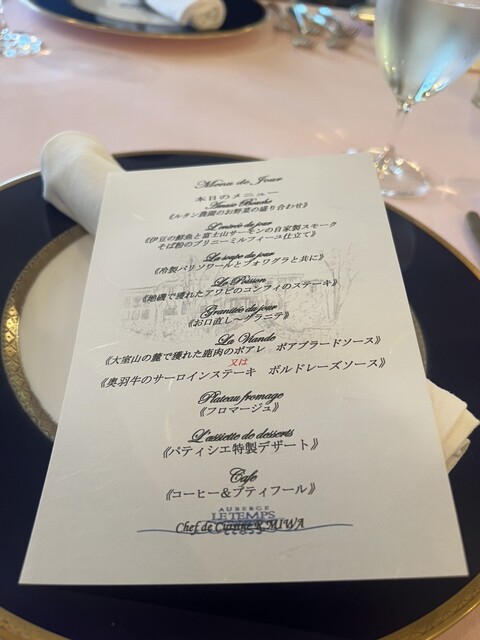 Menu de Jour
本日のメニュー
Amuse Bouche
《ルタン農園のお野菜の盛り合わせ》
L'entrée du jour
《伊豆の鮮魚と富士山サーモンの自家製スモーク
そば粉のブリニーミルフィーユ仕立て》
La soupe du jour
《冷製パリソワールとフォワグラと共に》
Le Poisson
《地磯で獲れたアワビのコンフィのステーキ》
Granitée du jour
《お口直し～グラニテ》
La Viande
《大室山の麓で獲れた鹿肉のポアレ ポアブラードソース》
又は
《奥羽牛のサーロインステーキ ボルドレーズソース》
Plateau fromage
《フロマージュ》
L'assiette de desserts
《パティシエ特製デザート》
Cafe
《コーヒー＆プティフール》
AUBERGE
LE TEMPS
Chef de Cuisine K.MIWA